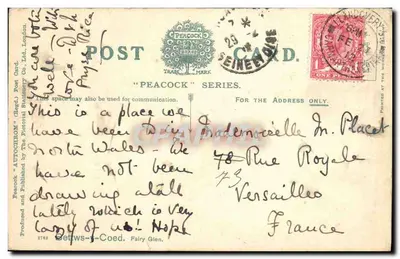 POST CARD.
TRADE MARK
"PEACOCK" SERIES.
This space may also be used for communication.
FOR THE ADDRESS ONLY.
This is a place we
have been to in
North Wales - We
have not been
drawing at all
lately which is very
lazy of us! Hope
you are
well. With
love
Mademoiselle M. Placet
78 Rue Royale
73
Versailles
France
Bettws-y-Coed. Fairy Glen.
Peacock "AUTOCHROM" (Regd.) Post Card.
Produced and Published by The Pictorial Stationery Co., Ltd., London.
SEINE ET OISE